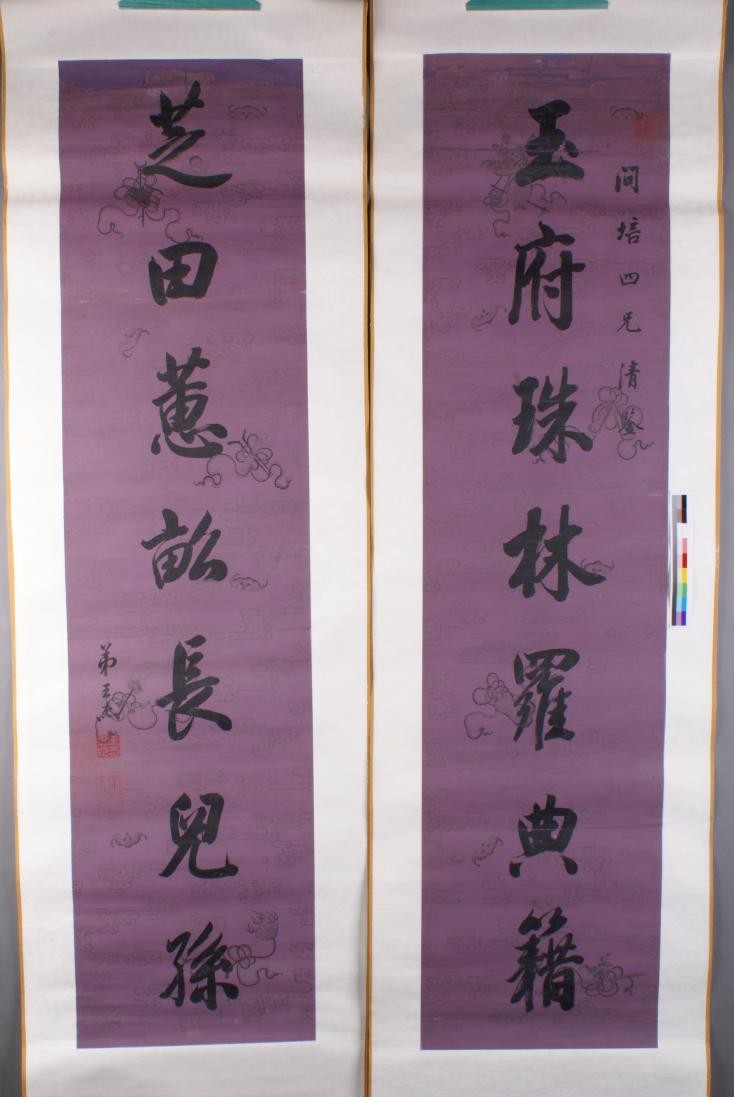 問培四兄清鑒
玉府珠林羅典籍
芝田蕙畝長兒孫
弟王杰